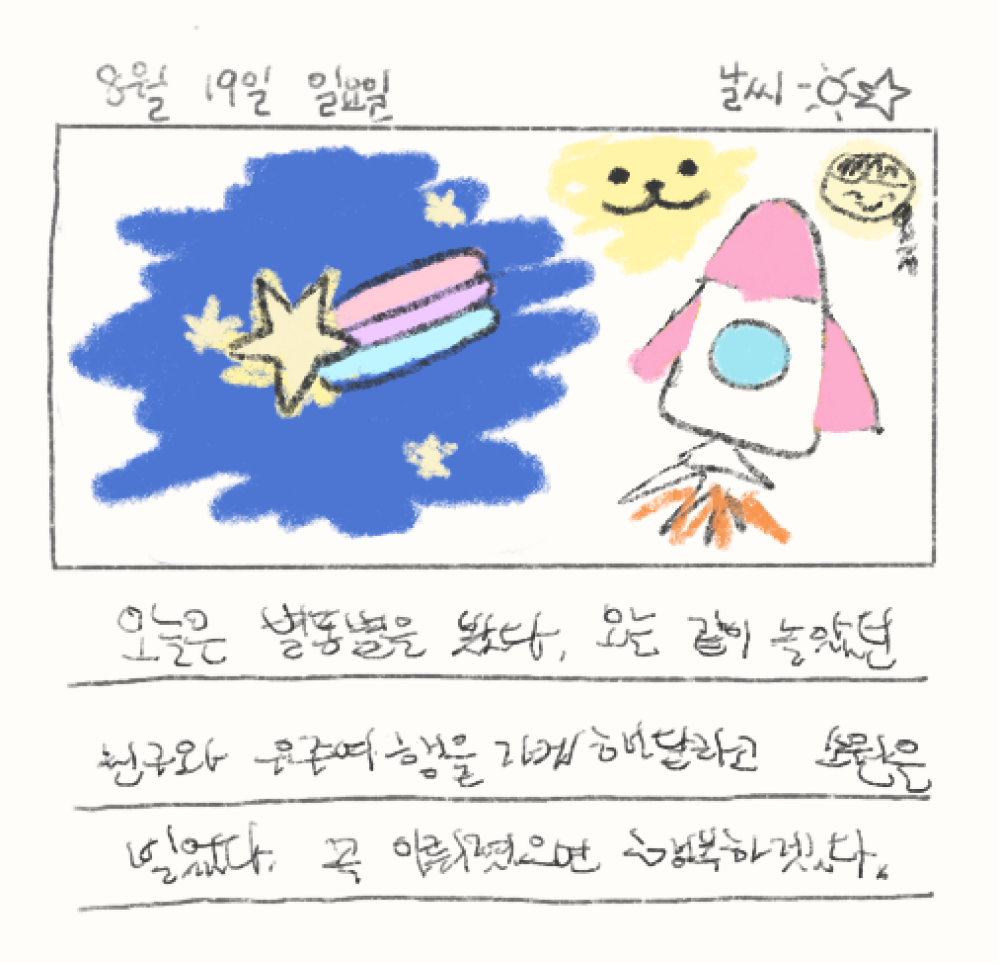 8월 19일 일요일 날씨
오늘은 별똥별을 봤다. 오는 같이 놀았던
친구와 우주여행을 가게 해달라고 소원을
빌었다. 꼭 행복하겠다.